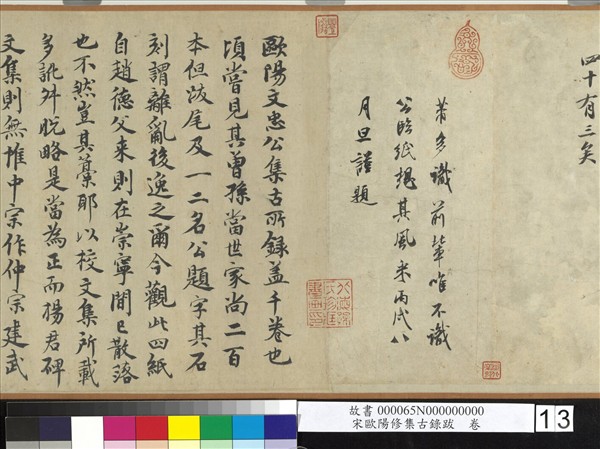 四十有三矣
莆多識前輩唯不識
公臨紙想其風采丙戌八
月旦謹題
歐陽文忠公集古所錄蓋千卷也
頃嘗見其曽孫當世家尚二百
本但跋尾及一二名公題字其石
刻謂離亂後逸之爾今觀此四紙
自趙德父来則在崇寧間已散落
也不然豈其藁耶以校文集所載
多訛舛脫略是當為正而楊君碑
文集則無惟中宗作仲宗建武
故書 000065N000000000
宋歐陽修集古錄跋 卷
13